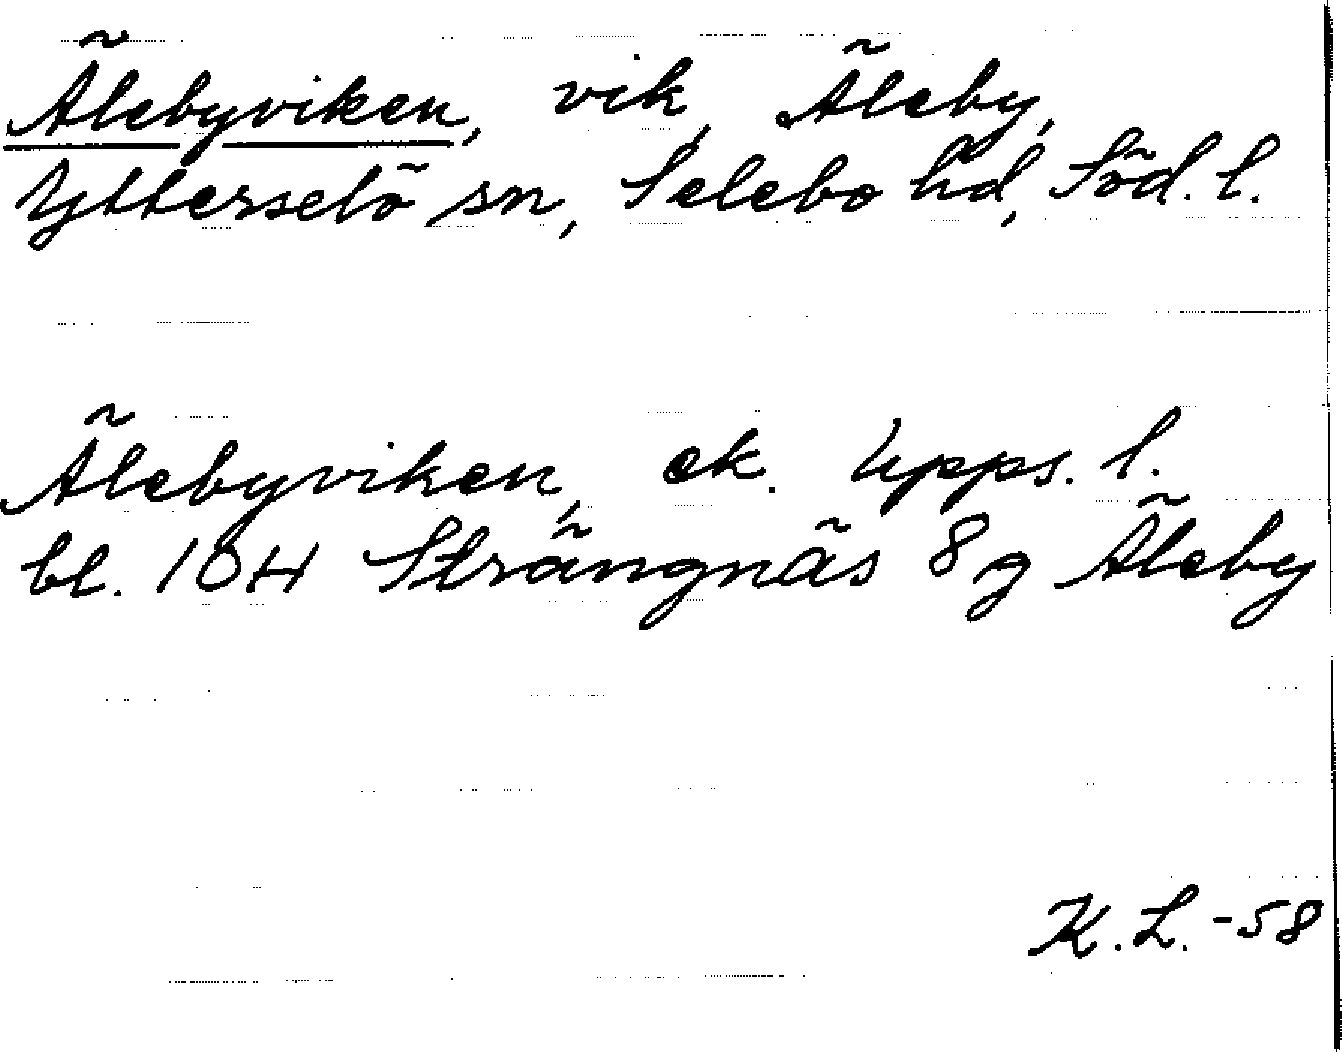 Älebyviken, vik, Äleby,
Ytterselö sn, Selebo hd, Söd. l.
Älebyviken, ek. Upps. l.
bl. 10H Strängnäs 8g Äleby
K.L. -58